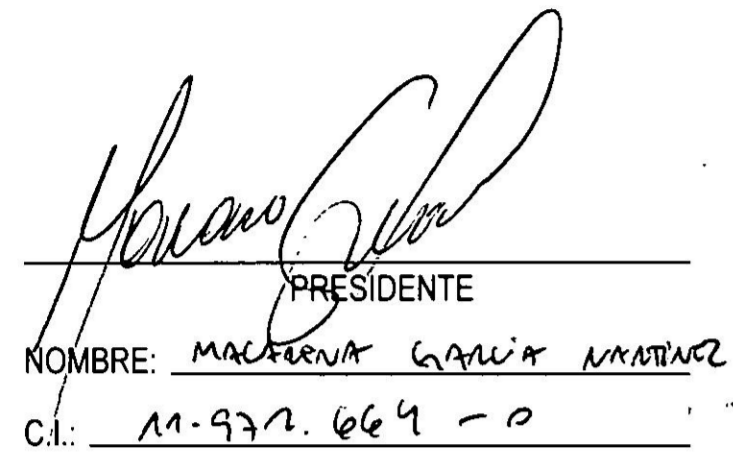 PRESIDENTE
NOMBRE: MACARENA GARCÍA MARTÍNEZ
C.I.: 11.971.664 - 0